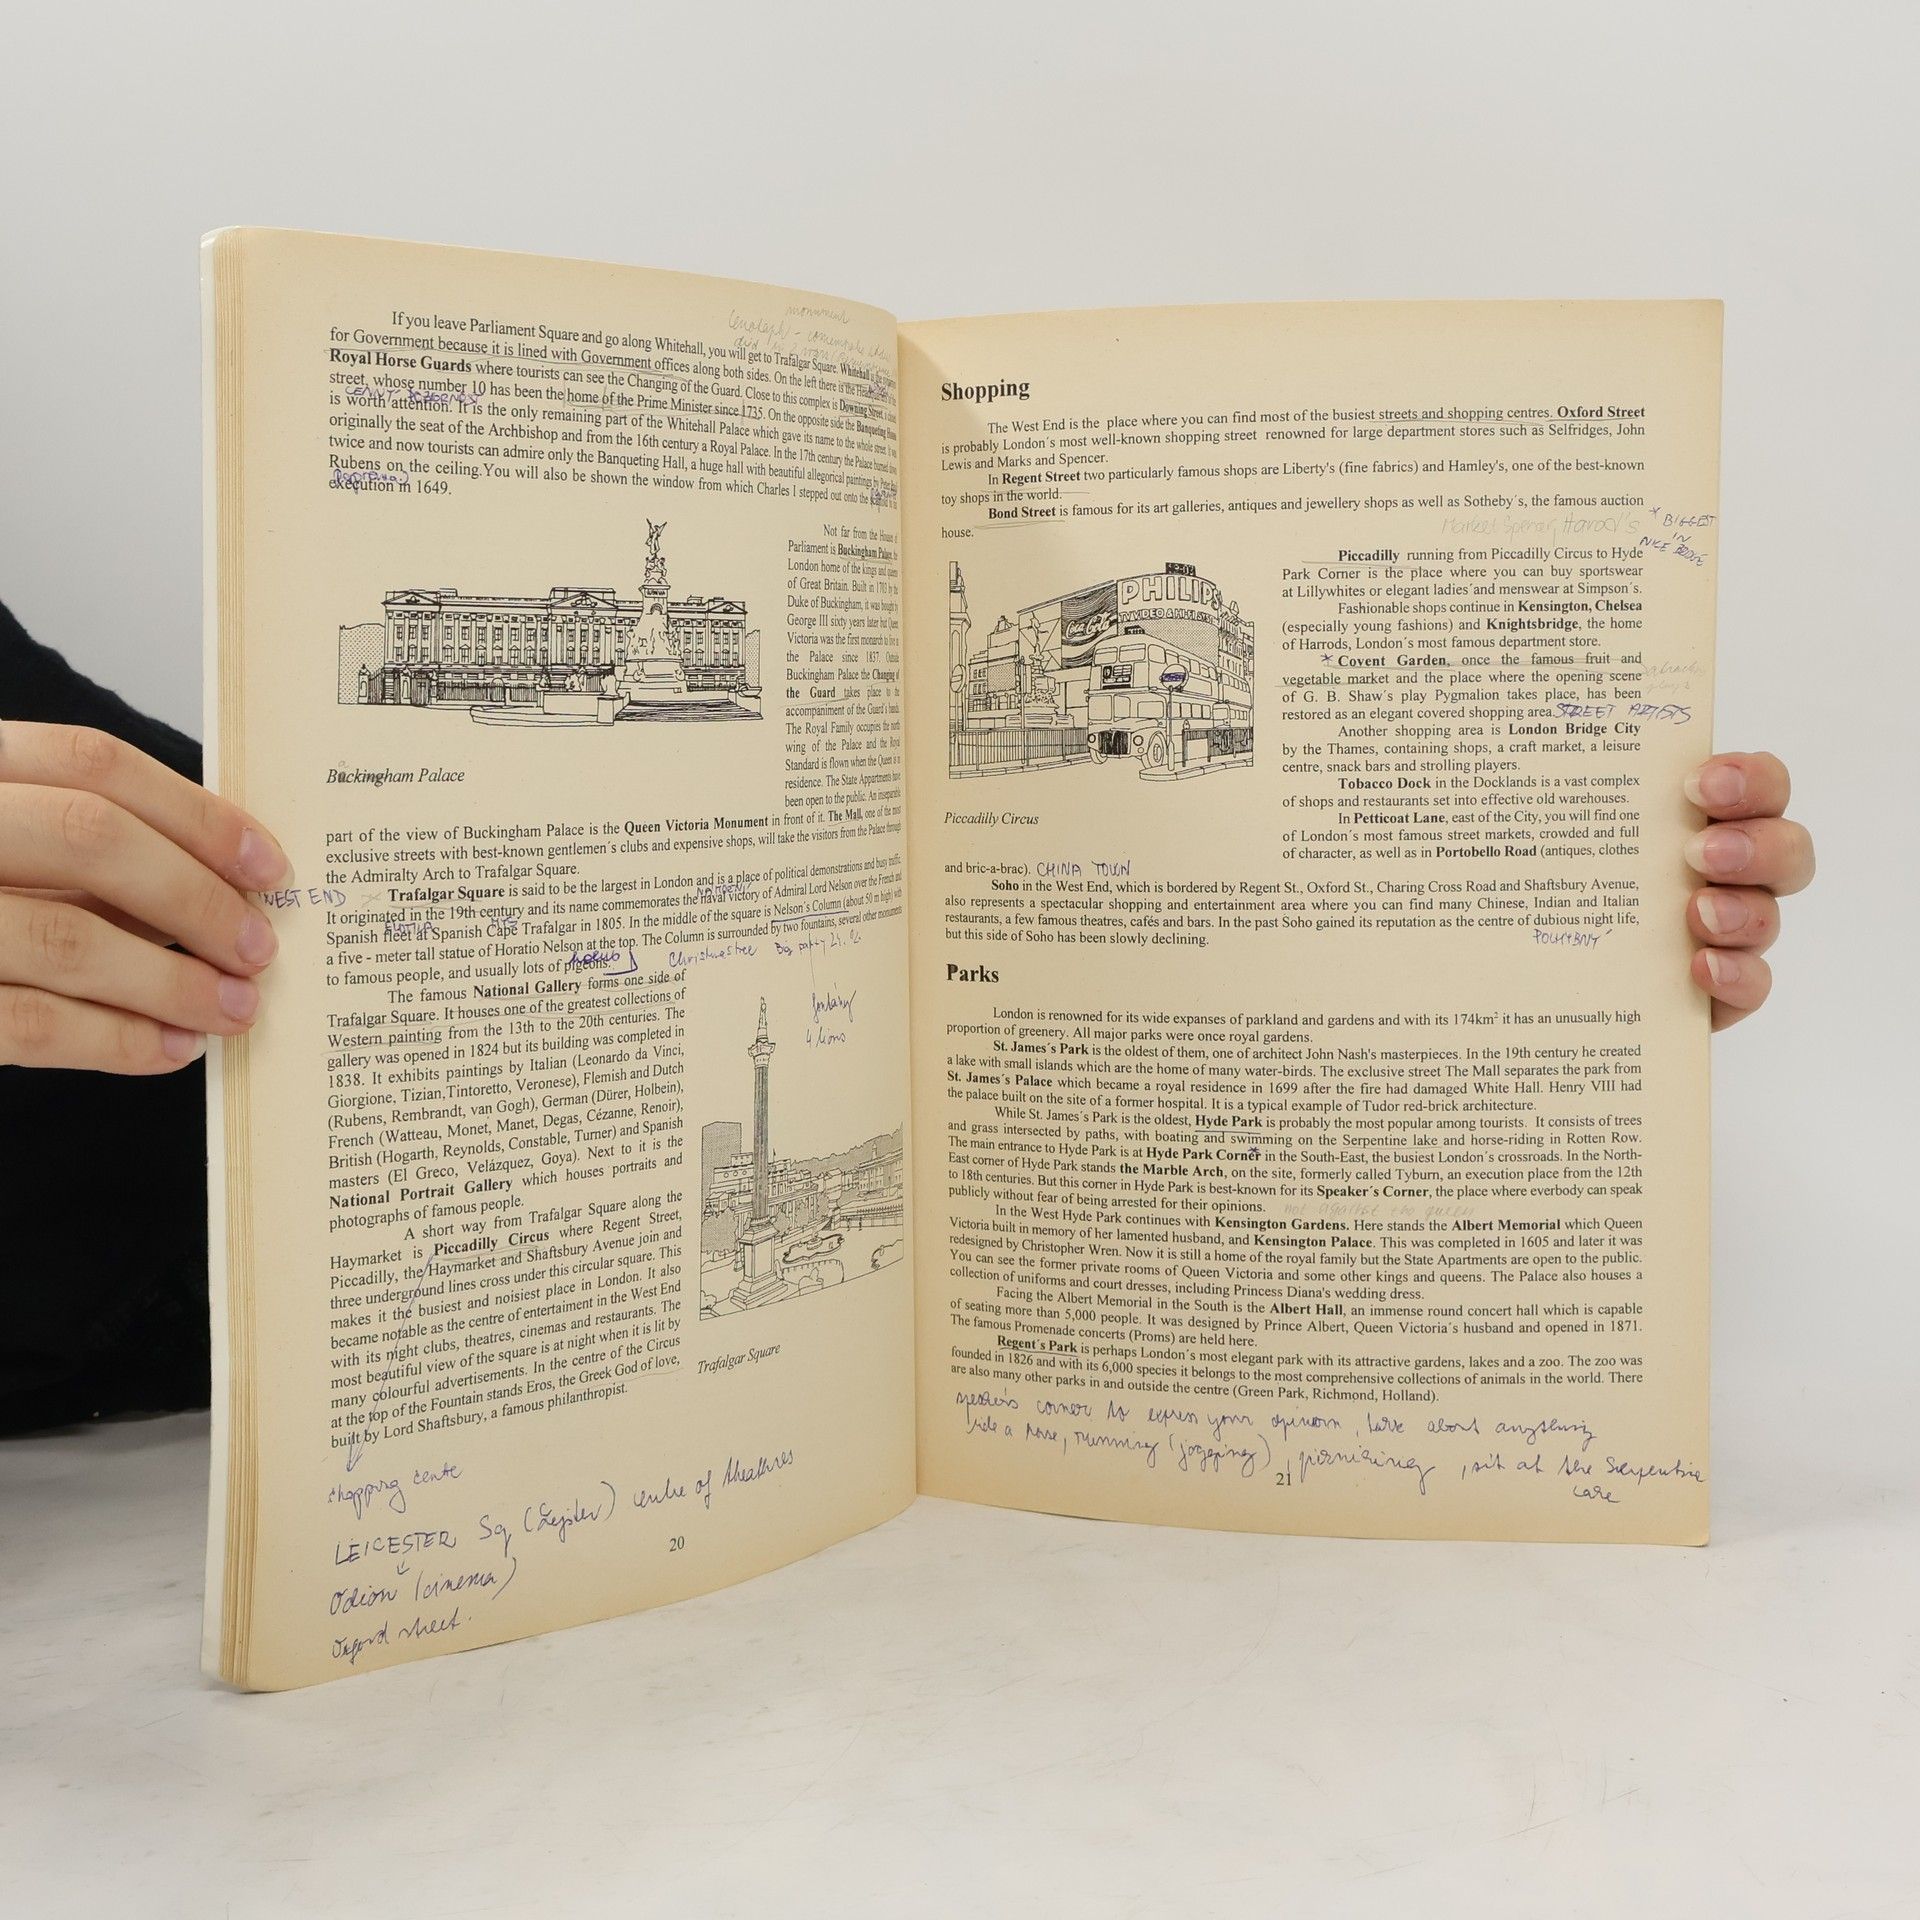 If you leave Parliament Square and go along Whitehall, you will get to Trafalgar Square. Whitehall is
for Government because it is lined with Government offices along both sides. On the left there is the
Royal Horse Guards where tourists can see the Changing of the Guard. Close to this complex is Downing Street,
street, whose number 10 has been the home of the Prime Minister since 1735. On the opposite side the Banqueting House
is worth attention. It is the only remaining part of the Whitehall Palace which gave its name to the whole street. It was
originally the seat of the Archbishop and from the 16th century a Royal Palace. In the 17th century the Palace burned down
twice and now tourists can admire only the Banqueting Hall, a huge hall with beautiful allegorical paintings by Peter Paul
Rubens on the ceiling.You will also be shown the window from which Charles I stepped out onto the
execution in 1649.
monument
Not far from the House of
Parliament is Buckingham Palace, the
London home of the kings and queens
of Great Britain. Built in 1703 by the
Duke of Buckingham, it was bought by
George III sixty years later but Queen
Victoria was the first monarch to live in
the Palace since 1837. Outside
Buckingham Palace the Changing of
the Guard takes place to the
accompaniment of the Guard's bands.
The Royal Family occupies the north
wing of the Palace and the Royal
Standard is flown when the Queen is in
residence. The State Appartments have
been open to the public. An inseparable
Buckingham Palace
part of the view of Buckingham Palace is the Queen Victoria Monument in front of it. The Mall, one of the most
exclusive streets with best-known gentlemen´s clubs and expensive shops, will take the visitors from the Palace through
the Admiralty Arch to Trafalgar Square.
WEST END
Trafalgar Square is said to be the largest in London and is a place of political demonstrations and busy traffic.
It originated in the 19th century and its name commemorates the naval victory of Admiral Lord Nelson over the French and
Spanish fleet at Spanish Cape Trafalgar in 1805. In the middle of the square is Nelson´s Column (about 50 m high) with
FLOTILA MYS
a five - meter tall statue of Horatio Nelson at the top. The Column is surrounded by two fountains, several other monuments
to famous people, and usually lots of pigeons. holub Christmas tree Big party
fontány
4 lions
The famous National Gallery forms one side of
Trafalgar Square. It houses one of the greatest collections of
Western painting from the 13th to the 20th centuries. The
gallery was opened in 1824 but its building was completed in
1838. It exhibits paintings by Italian (Leonardo da Vinci,
Giorgione, Tizian,Tintoretto, Veronese), Flemish and Dutch
(Rubens, Rembrandt, van Gogh), German (Dürer, Holbein),
French (Watteau, Monet, Manet, Degas, Cézanne, Renoir),
British (Hogarth, Reynolds, Constable, Turner) and Spanish
masters (El Greco, Velázquez, Goya). Next to it is the
National Portrait Gallery which houses portraits and
photographs of famous people.
A short way from Trafalgar Square along the
Haymarket is Piccadilly Circus where Regent Street,
Piccadilly, the Haymarket and Shaftsbury Avenue join and
three underground lines cross under this circular square. This
makes it the busiest and noisiest place in London. It also
became notable as the centre of entertaiment in the West End
with its night clubs, theatres, cinemas and restaurants. The
most beautiful view of the square is at night when it is lit by
many colourful advertisements. In the centre of the Circus
at the top of the Fountain stands Eros, the Greek God of love,
built by Lord Shaftsbury, a famous philanthropist.
Trafalgar Square
shopping cente
LEICESTER Sq (Lejster) centre of theathres
Odion (cinema)
Oxford street.
20
Shopping
The West End is the place where you can find most of the busiest streets and shopping centres. Oxford Street
is probably London´s most well-known shopping street renowned for large department stores such as Selfridges, John
Lewis and Marks and Spencer.
In Regent Street two particularly famous shops are Liberty's (fine fabrics) and Hamley's, one of the best-known
toy shops in the world.
Bond Street is famous for its art galleries, antiques and jewellery shops as well as Sotheby´s, the famous auction
house.
* BIGGEST
IN
Piccadilly running from Piccadilly Circus to Hyde
Park Corner is the place where you can buy sportswear
at Lillywhites or elegant ladies´and menswear at Simpson´s.
Fashionable shops continue in Kensington, Chelsea
(especially young fashions) and Knightsbridge, the home
of Harrods, London´s most famous department store.
* Covent Garden, once the famous fruit and
vegetable market and the place where the opening scene
of G. B. Shaw´s play Pygmalion takes place, has been
restored as an elegant covered shopping area. STREET ARTISTS
Another shopping area is London Bridge City
by the Thames, containing shops, a craft market, a leisure
centre, snack bars and strolling players.
Tobacco Dock in the Docklands is a vast complex
of shops and restaurants set into effective old warehouses.
In Petticoat Lane, east of the City, you will find one
of London´s most famous street markets, crowded and full
of character, as well as in Portobello Road (antiques, clothes
19:07
PHILIPS
TV VIDEO & HI-FI
Coca-Cola
Piccadilly Circus
and bric-a-brac). CHINA TOWN
Soho in the West End, which is bordered by Regent St., Oxford St., Charing Cross Road and Shaftsbury Avenue,
also represents a spectacular shopping and entertainment area where you can find many Chinese, Indian and Italian
restaurants, a few famous theatres, cafés and bars. In the past Soho gained its reputation as the centre of dubious night life,
but this side of Soho has been slowly declining. POCHYBNÝ
Parks
London is renowned for its wide expanses of parkland and gardens and with its 174km² it has an unusually high
proportion of greenery. All major parks were once royal gardens.
St. James´s Park is the oldest of them, one of architect John Nash's masterpieces. In the 19th century he created
a lake with small islands which are the home of many water-birds. The exclusive street The Mall separates the park from
St. James´s Palace which became a royal residence in 1699 after the fire had damaged White Hall. Henry VIII had
the palace built on the site of a former hospital. It is a typical example of Tudor red-brick architecture.
While St. James´s Park is the oldest, Hyde Park is probably the most popular among tourists. It consists of trees
and grass intersected by paths, with boating and swimming on the Serpentine lake and horse-riding in Rotten Row.
The main entrance to Hyde Park is at Hyde Park Corner in the South-East, the busiest London´s crossroads. In the North-
East corner of Hyde Park stands the Marble Arch, on the site, formerly called Tyburn, an execution place from the 12th
to 18th centuries. But this corner in Hyde Park is best-known for its Speaker´s Corner, the place where everbody can speak
publicly without fear of being arrested for their opinions. not against the queen
In the West Hyde Park continues with Kensington Gardens. Here stands the Albert Memorial which Queen
Victoria built in memory of her lamented husband, and Kensington Palace. This was completed in 1605 and later it was
redesigned by Christopher Wren. Now it is still a home of the royal family but the State Apartments are open to the public.
You can see the former private rooms of Queen Victoria and some other kings and queens. The Palace also houses a
collection of uniforms and court dresses, including Princess Diana's wedding dress.
Facing the Albert Memorial in the South is the Albert Hall, an immense round concert hall which is capable
of seating more than 5,000 people. It was designed by Prince Albert, Queen Victoria´s husband and opened in 1871.
The famous Promenade concerts (Proms) are held here.
Regent´s Park is perhaps London´s most elegant park with its attractive gardens, lakes and a zoo. The zoo was
founded in 1826 and with its 6,000 species it belongs to the most comprehensive collections of animals in the world. There
are also many other parks in and outside the centre (Green Park, Richmond, Holland).
speaker's corner to express your opinion, talk about anything
ride a horse, running (jogging), picnicing, sit at the Serpentine
lake
21